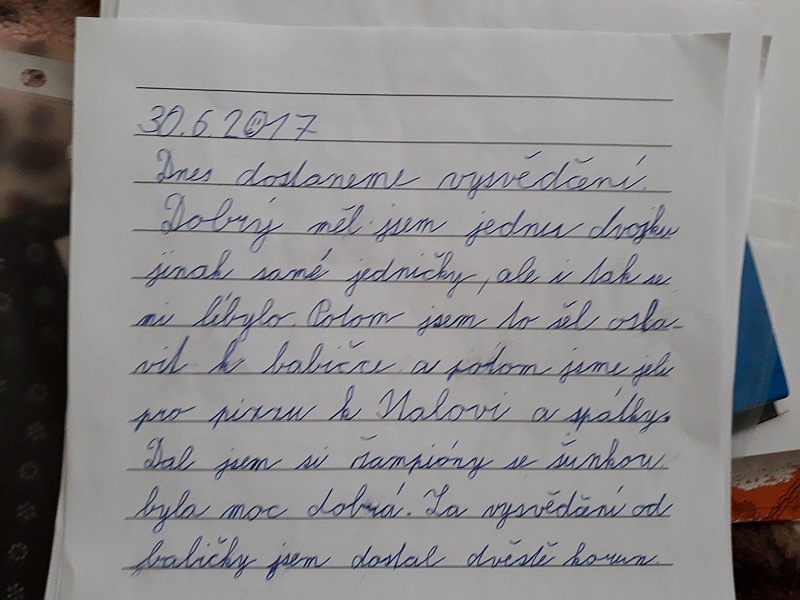 30.6.2017
Dnes dostaneme vysvědčení.
Dobrý měl jsem jednu dvojku
jinak samé jedničky, ale i tak se
mi líbylo. Potom jsem to šél osla-
vit k babičce a potom jsme jeli
pro pizzu k Halovi a spátky.
Dal jsem si žampióny se šunkou
byla moc dobrá. Za vysvědčení od
babičky jsem dostal dvěstě korun.